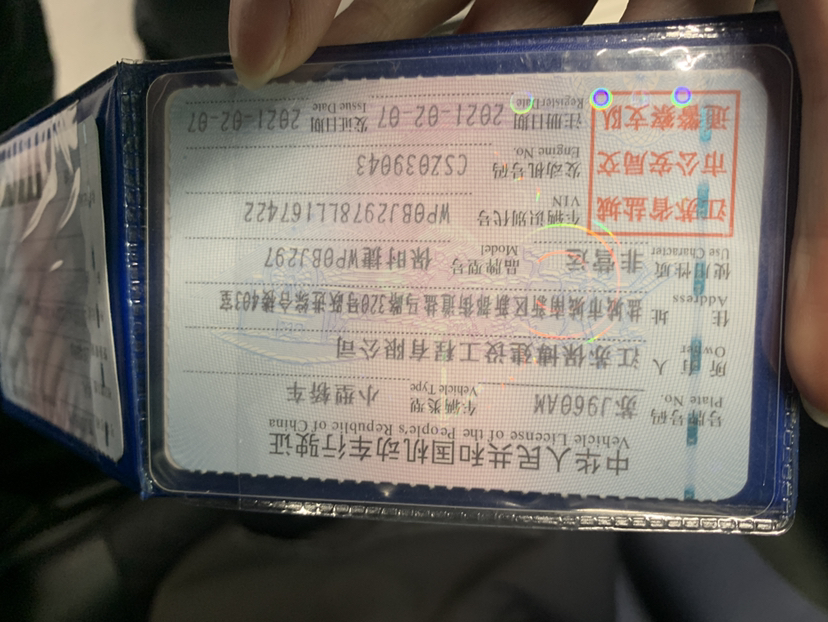 中华人民共和国机动车行驶证
Vehicle License of the People's Republic of China
号牌号码 Plate No. 苏J960AM 车辆类型 Vehicle Type 小型轿车
所有人 Owner 江苏保博建设工程有限公司
住址 Address 盐城市城南新区新都街道盐马路320号跃进综合楼403室
使用性质 Use Character 非营运 品牌型号 Model 保时捷WP0BJ297
江苏省盐城
市公安局交
通警察支队
车辆识别代号 VIN WP0BJ2978LL167422
发动机号码 Engine No. CSZ039043
注册日期 Register Date 2021-02-07 发证日期 Issue Date 2021-02-07